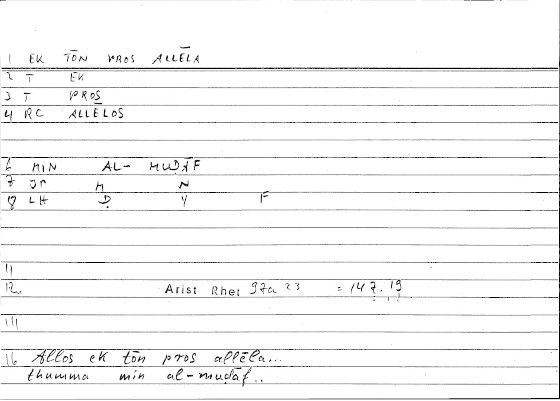 1 EK TŌN PROS ALLĒLA
2 T EK
3 T PROS
4 RC ALLĒLOS
6 MIN AL- MUḌĀF
7 JP M N
8 LH Ḍ Y F
11
12 Arist Rhet 97a 23 = 147.19
14
16 Allos ek tōn pros allēla...
thumma min al-muḍāf..